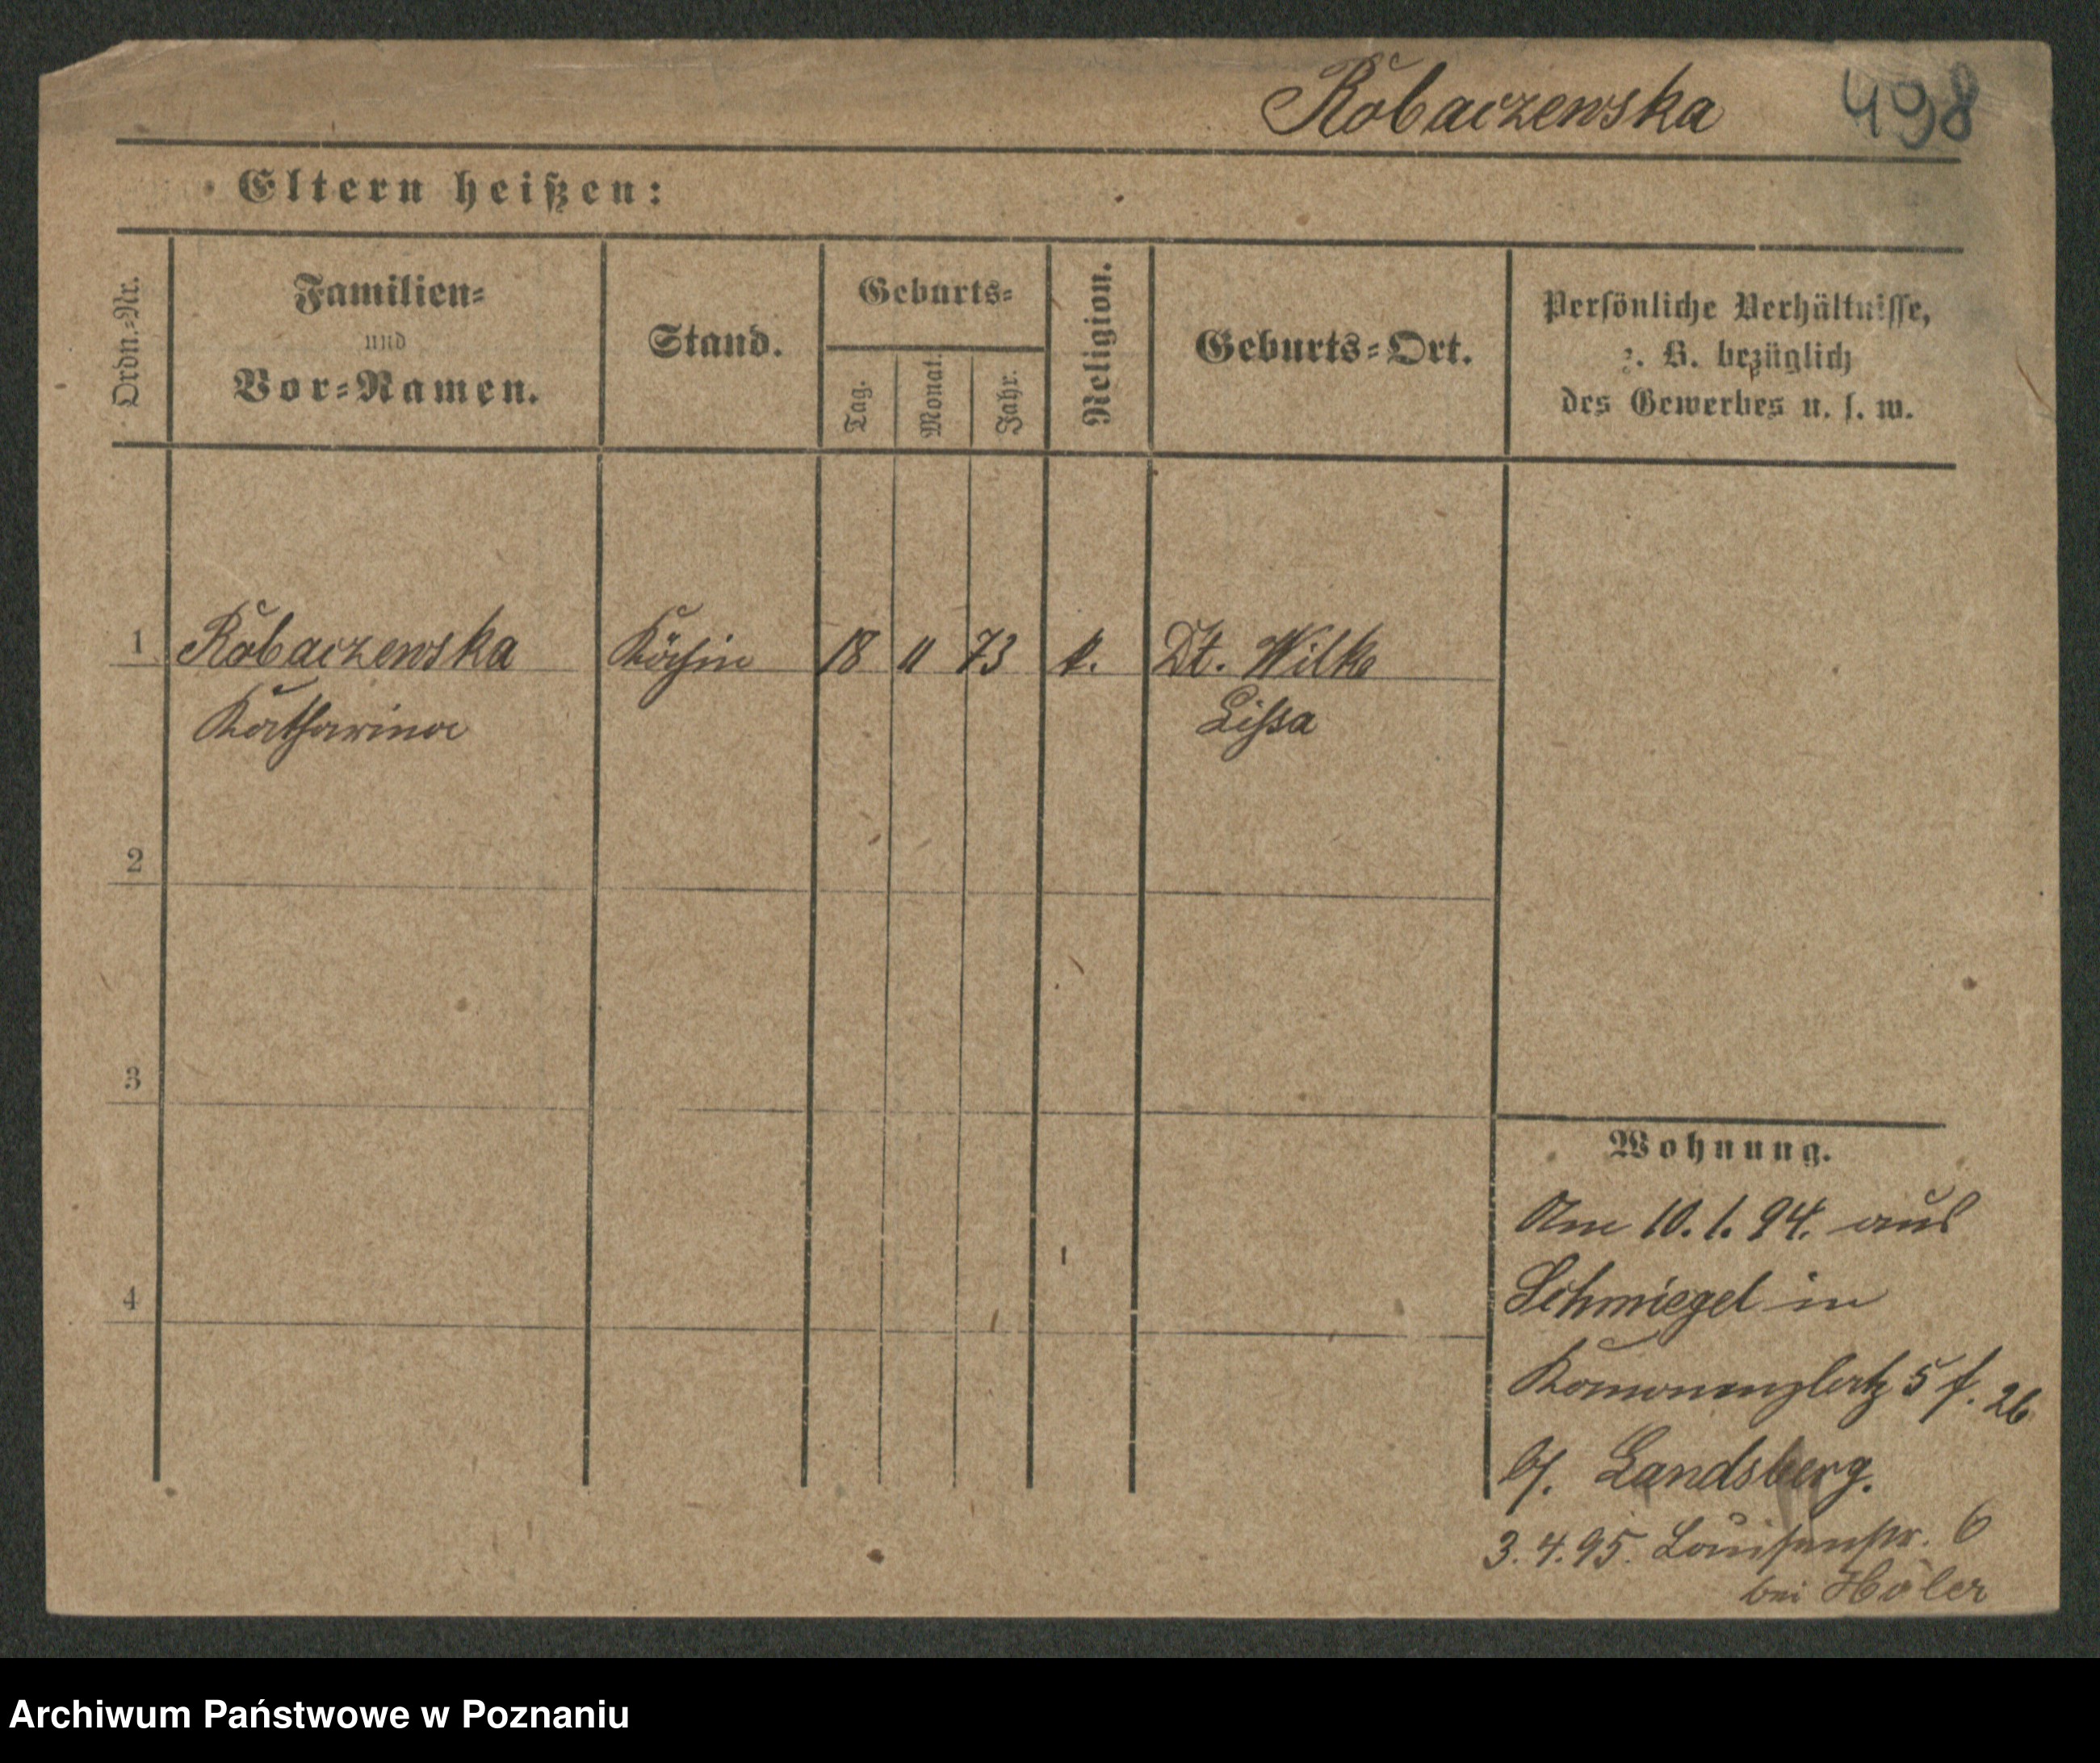 Robaczewska 498
Eltern heißen:
Ordn.-Nr.
Familien-
und
Vor-Namen.
Stand.
Geburts-
Tag.
Monat.
Jahr.
Religion.
Geburts-Ort.
Persönliche Verhältnisse,
z. B. bezüglich
des Gewerbes u. s. w.
1 Robaczewska Köchin 18 11 73 k. Dt. Wilke
Katharina Lissa
2
3
4
Wohnung.
Am 10.1.94. aus
Schmiegel in
5 f. 26
b/. Landsberg.
3.4.95. Louisenstr. 6
bei Holer
Archiwum Państwowe w Poznaniu